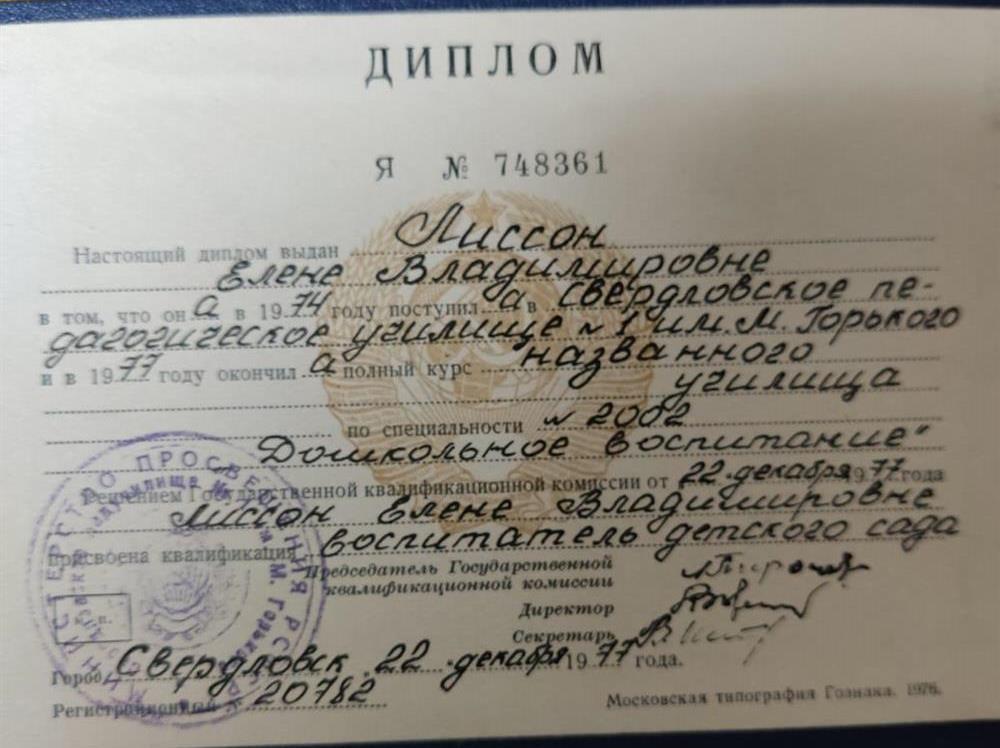 ДИПЛОМ
Я № 748361
Настоящий диплом выдан Лиссон
Елене Владимировне
в том, что он а в 1974 году поступил а в Свердловское пе-
дагогическое училище №1 им. М. Горького
и в 1977 году окончил а полный курс названного
училища
по специальности №2002
Дошкольное воспитание"
Решением Государственной квалификационной комиссии от 22 декабря 1977 года
Лиссон Елене Владимировне
присвоена квалификация воспитатель детского сада
Председатель Государственной
квалификационной комиссии
Директор
Секретарь
Город Свердловск 22 декабря 1977 года.
Регистрационный № 20782
Московская типография Гознака. 1976.
МИНИСТЕРСТВО ПРОСВЕЩЕНИЯ РСФСР
училище № 1 им М. Горького